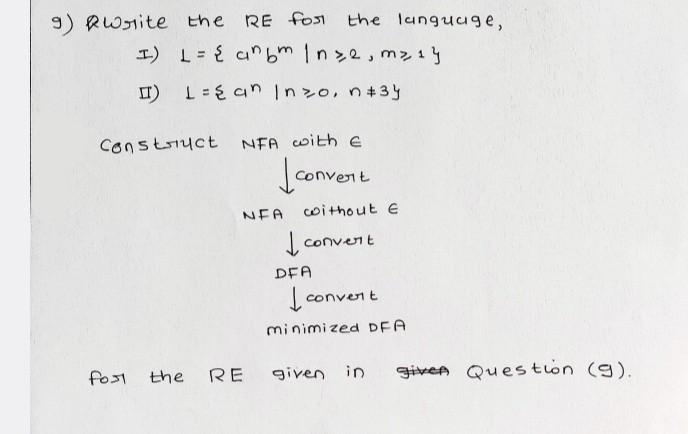 9) Rwrite the RE for the language,
I) L = { aⁿbᵐ | n ≥ 2, m ≥ 1 }
II) L = { aⁿ | n ≥ 0, n ≠ 3 }
Construct NFA with ∈
convert
NFA without ∈
convert
DFA
convert
minimized DFA
for the RE given in given Question (9).